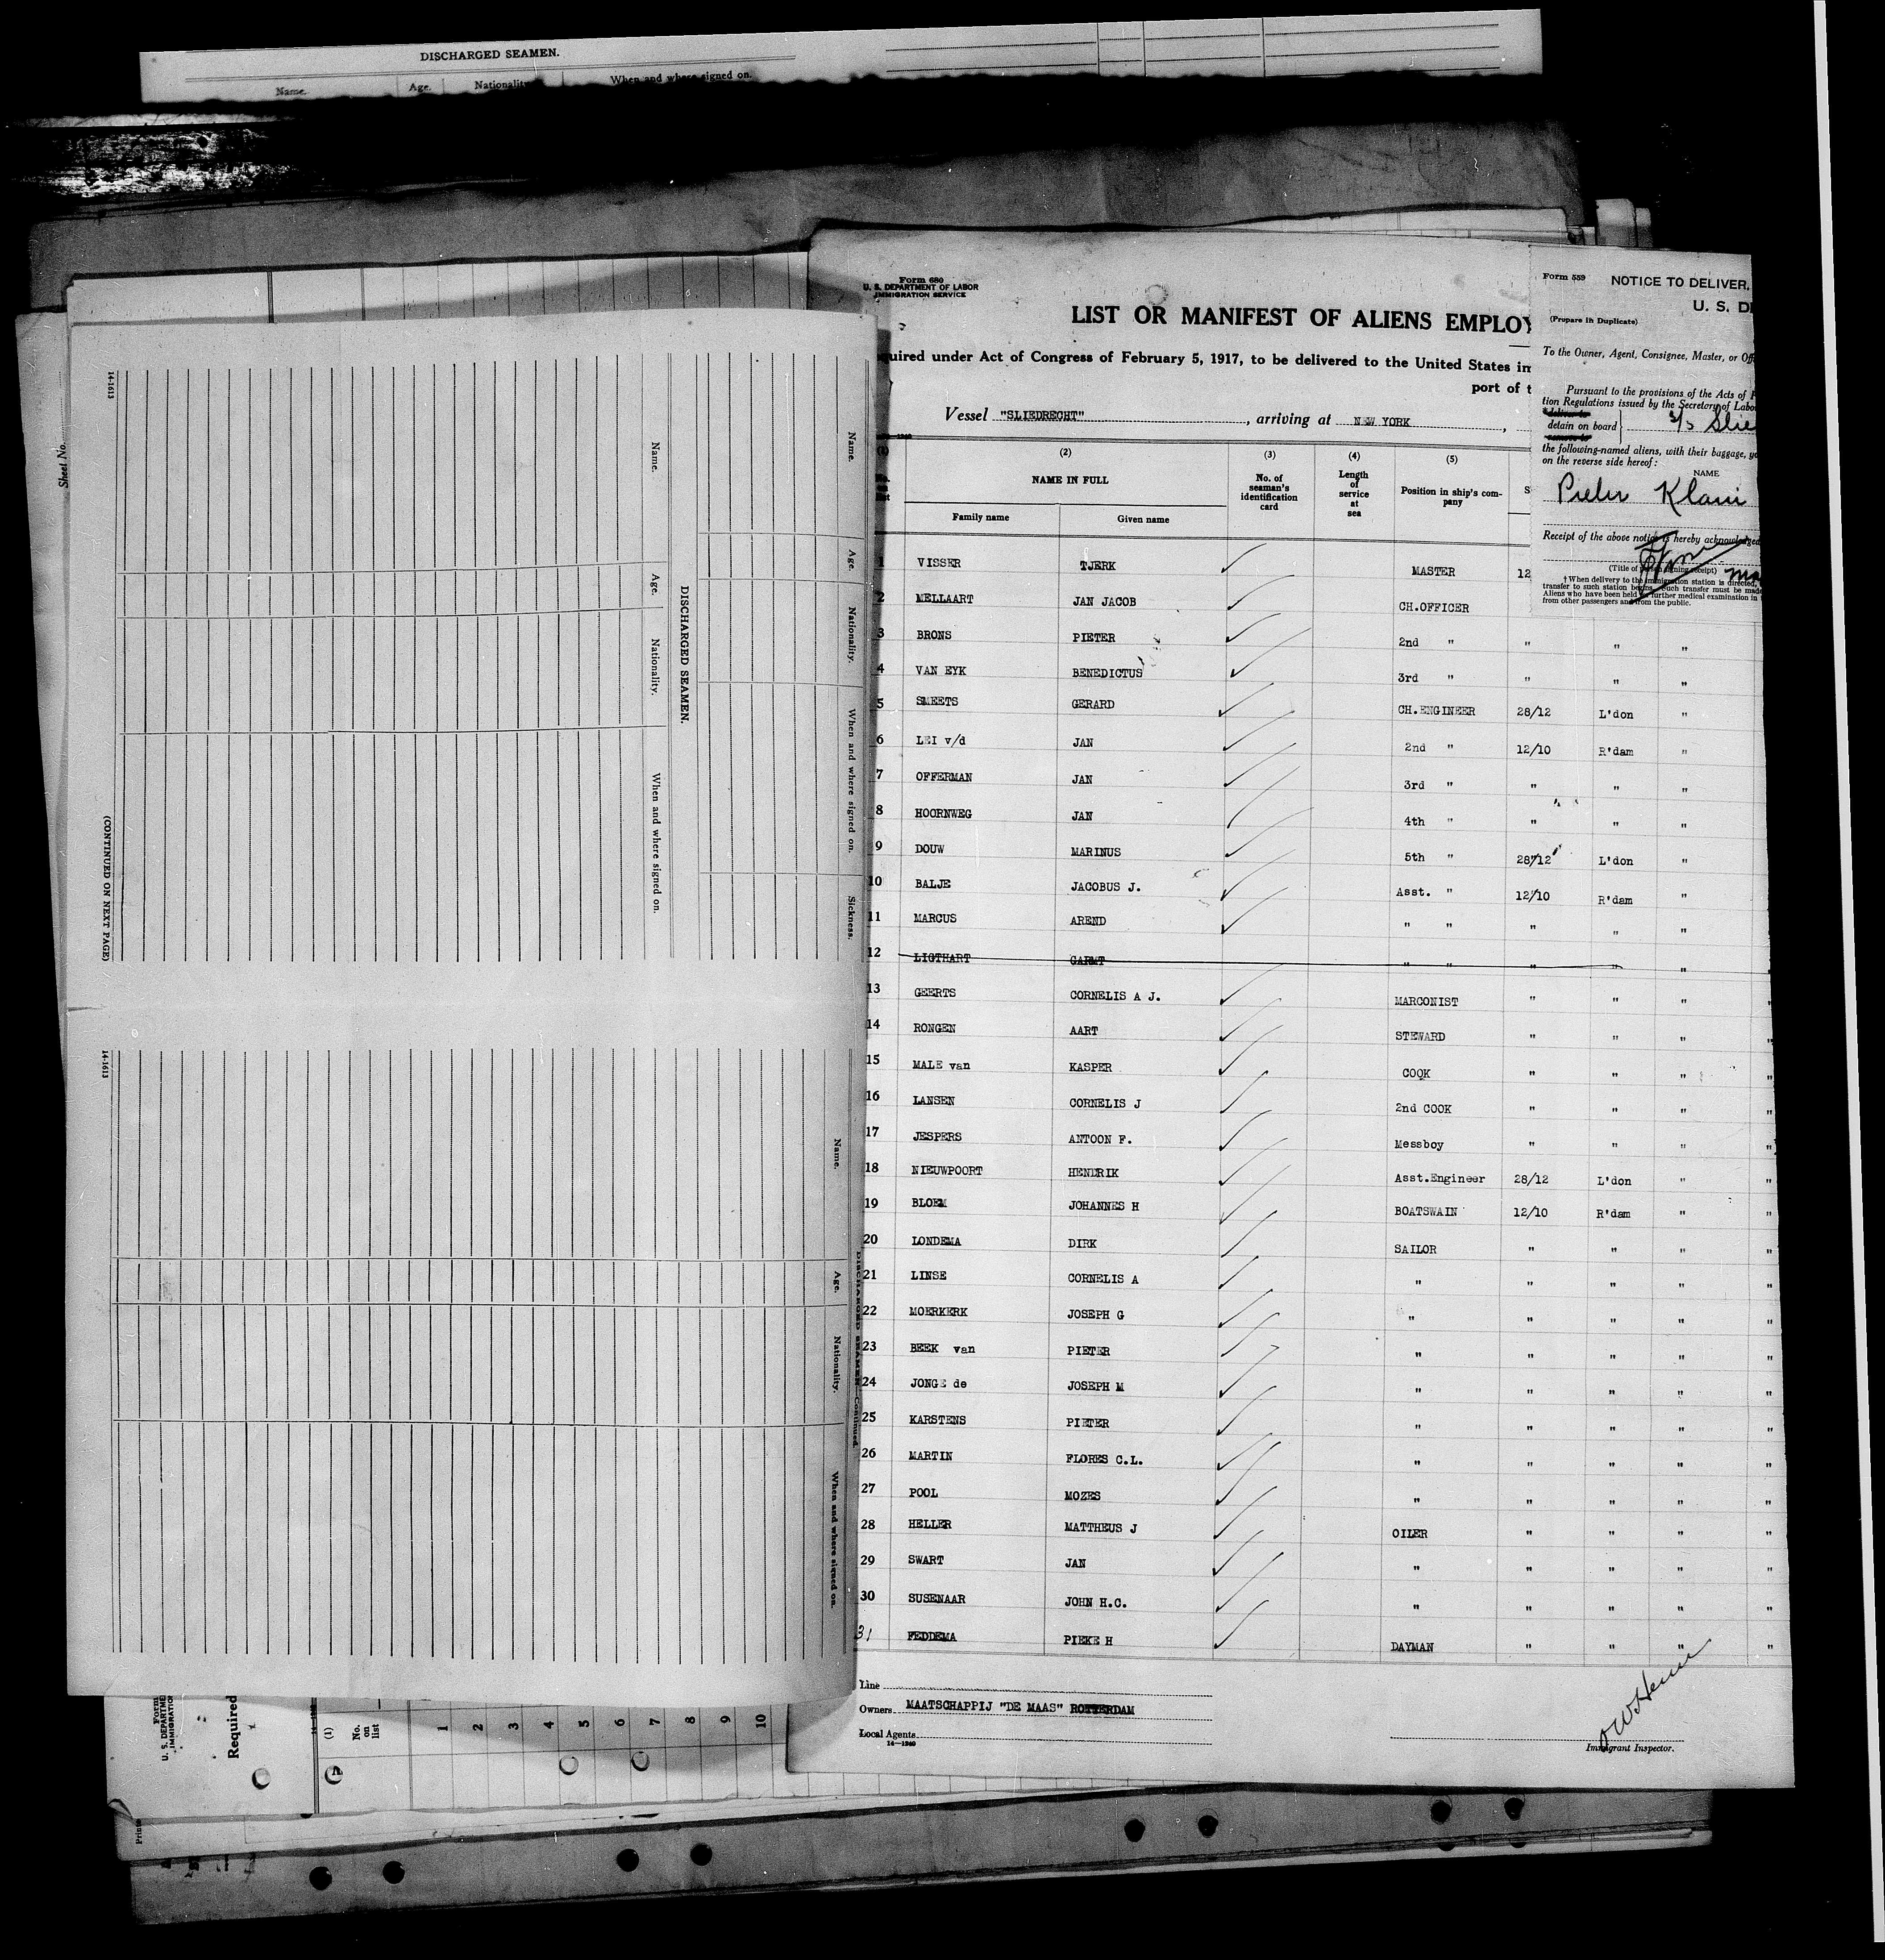 DISCHARGED SEAMEN.
Name. Age. Nationality When and where signed on.
Sheet No.
14-1613
Name. Age. Nationality. When and where signed on. Sickness.
DISCHARGED SEAMEN.
Name. Age. Nationality. When and where signed on.
(CONTINUED ON NEXT PAGE)
14-1613
DISCHARGED SEAMEN—Continued.
Name. Age. Nationality. When and where signed on.
Form
U. S. DEPARTME
IMMIGRATIO
Required
(1)
No. on list
1 2 3 4 5 6 7 8 9 10
Form 680
U. S. DEPARTMENT OF LABOR
IMMIGRATION SERVICE
LIST OR MANIFEST OF ALIENS EMPLOY
quired under Act of Congress of February 5, 1917, to be delivered to the United States im
port of t
Vessel "SLIEDRECHT", arriving at NEW YORK,
(2) (3) (4) (5)
NAME IN FULL
No. of seaman's identification card
Length of service at sea
Position in ship's company
Family name Given name
1 VISSER TJERK MASTER 12
2 MELLAART JAN JACOB CH.OFFICER
3 BRONS PIETER 2nd " " " "
4 VAN EYK BENEDICTUS 3rd " " " "
5 SMEETS GERARD CH.ENGINEER 28/12 L'don "
6 LEI v/d JAN 2nd " 12/10 R'dam "
7 OFFERMAN JAN 3rd " " " "
8 HOORNWEG JAN 4th " " " "
9 DOUW MARINUS 5th " 28/12 L'don "
10 BALJE JACOBUS J. Asst. " 12/10 R'dam "
11 MARCUS AREND " " " " "
12 LIGTHART GARMT " " " " "
13 GEERTS CORNELIS A J. MARCONIST " " " "
14 RONGEN AART STEWARD " " " "
15 MALE van KASPER COOK " " " "
16 LANSEN CORNELIS J 2nd COOK " " " "
17 JESPERS ANTOON F. Messboy " " " "
18 NIEUWPOORT HENDRIK Asst.Engineer 28/12 L'don " "
19 BLOEM JOHANNES H BOATSWAIN 12/10 R'dam " "
20 LONDEMA DIRK SAILOR " " " "
21 LINSE CORNELIS A " " " " "
22 MOERKERK JOSEPH G " " " " "
23 BEEK van PIETER " " " " "
24 JONGE de JOSEPH M " " " " "
25 KARSTENS PIETER " " " " "
26 MARTIN FLORES C.L. " " " " "
27 POOL MOZES " " " " "
28 HELLER MATTHEUS J OILER " " " "
29 SWART JAN " " " " "
30 SUSENAAR JOHN H.C. " " " " "
31 FEDDEMA PIEKE H DAYMAN " " " "
Line
Owners MAATSCHAPPIJ "DE MAAS" ROTTERDAM
Local Agents
14—1240
Immigrant Inspector.
Form 559 NOTICE TO DELIVER,
U. S. DE
(Prepare in Duplicate)
To the Owner, Agent, Consignee, Master, or Off
Pursuant to the provisions of the Acts of
tion Regulations issued by the Secretary of Labo
deliver to
detain on board s/s Slie
remove to
the following-named aliens, with their baggage, yo
on the reverse side hereof:
NAME
Pieter Klam
Receipt of the above notice is hereby acknowledged
(Title of person signing receipt)
† When delivery to the immigration station is directed,
transfer to such station begins. Such transfer must be made
Aliens who have been held for further medical examination in
from other passengers and from the public.